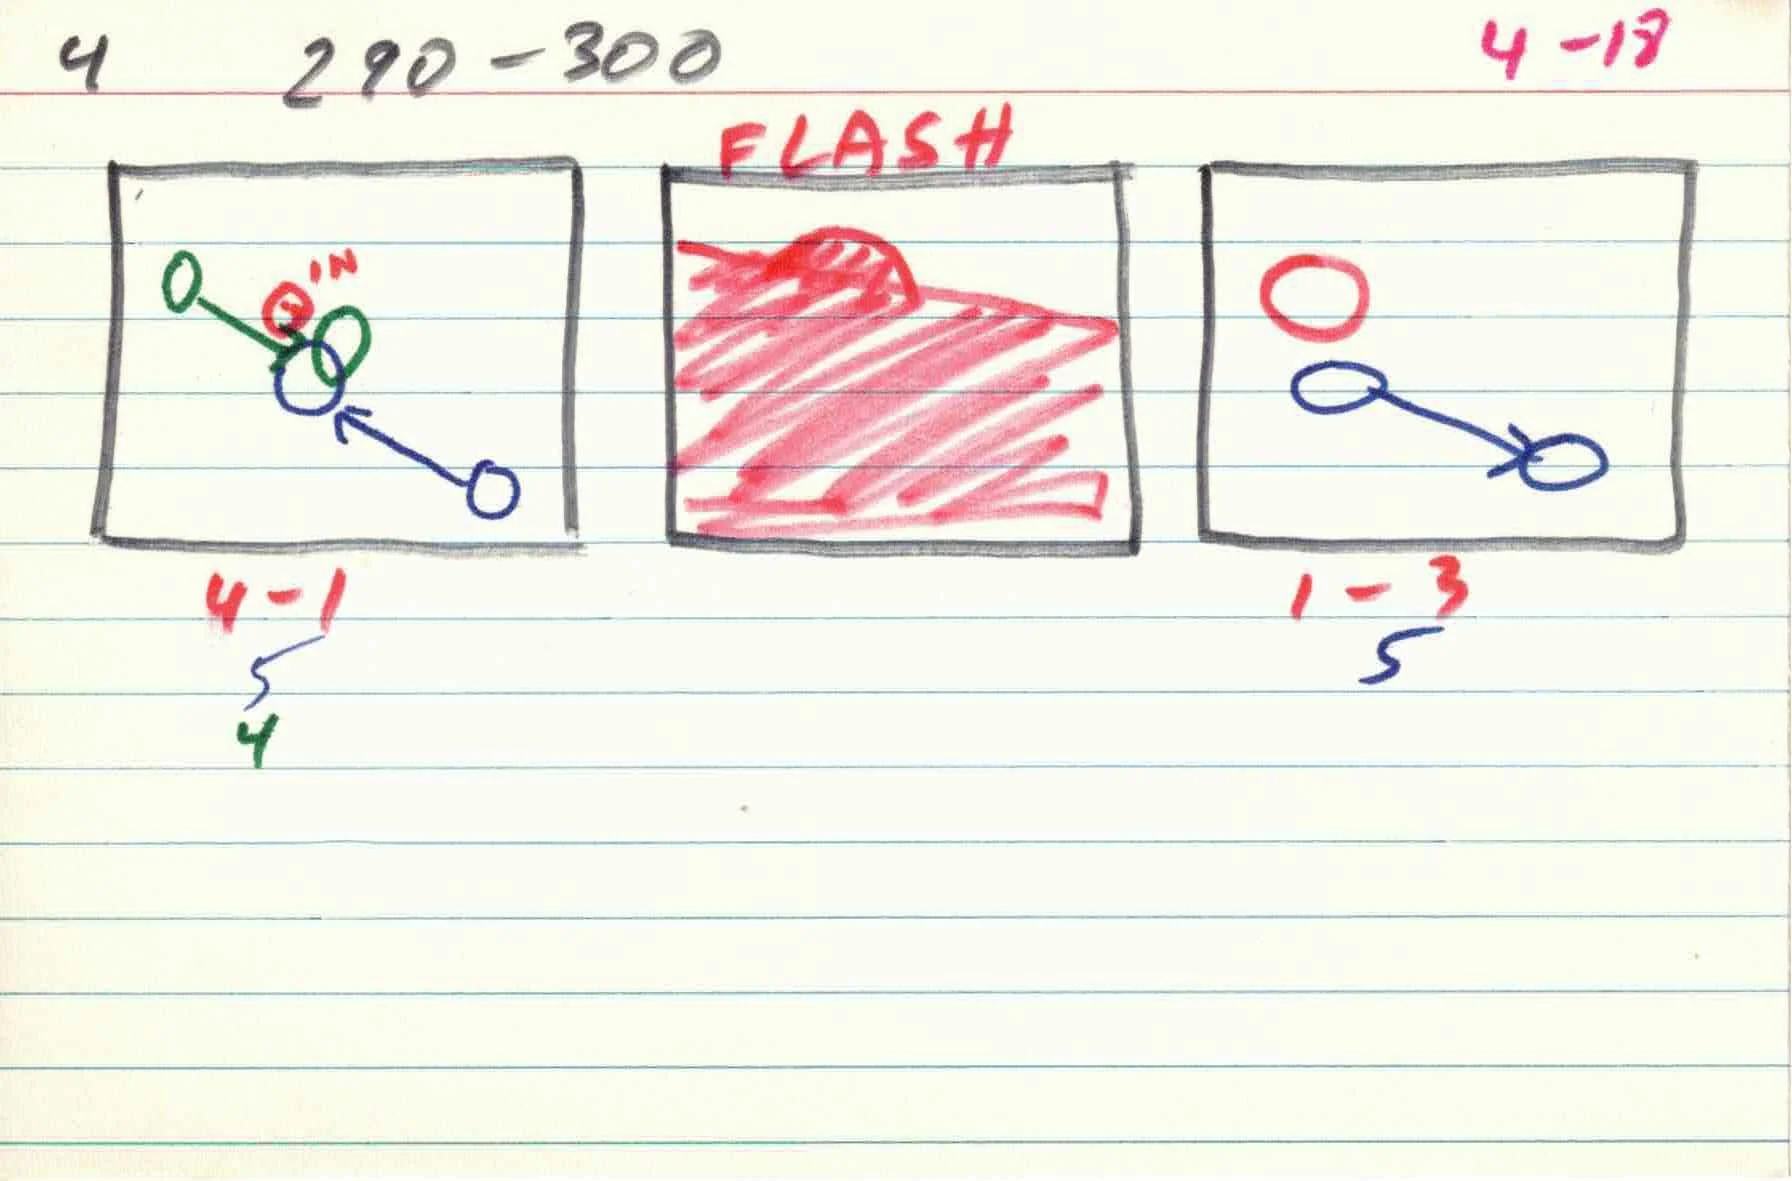 4 290-300 4-18
FLASH
IN
4-1 1-3
5 5
4